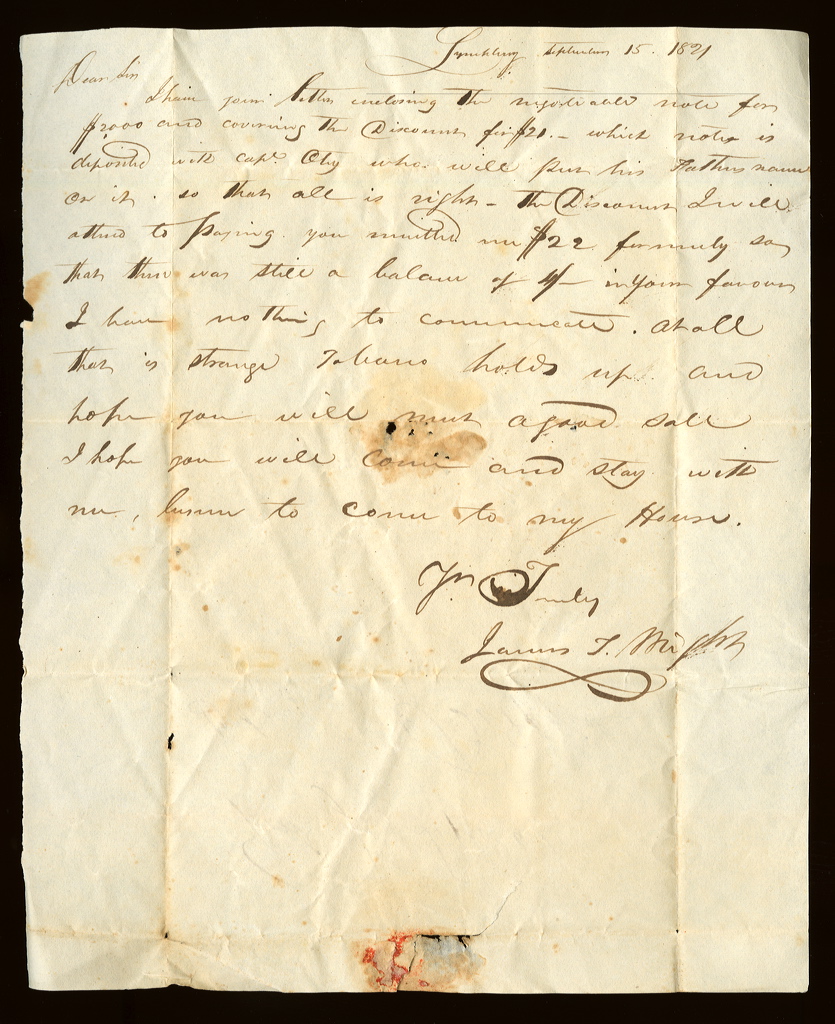 Lynchburg September 15. 1821
Dear Sir
I have your letter enclosing the negotiable note for
$2000 and covering the Discount for $21. — which note is
deposited with Capt. Otey who will put his Fathers name
on it. so that all is right — the Discount I will
attend to paying. you remitted me $22 formerly so
that there was still a balance of 4/- in your favour
I have nothing to communicate. at all
that is strange Tobacco holds up and
hope you will meet a good sale
I hope you will come and stay with
me, to come to my House.
Yrs Truly
James T. Wright